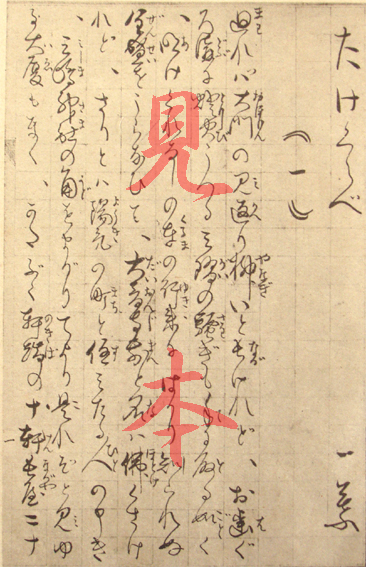 たけくらべ
一葉
(一)
廻れば大門の見返り柳いと長けれど、お歯ぐ
ろ溝に燈火うつる三階の騒ぎも手に取る如く
、明けくれなしの車の行来にはかり知られぬ
全盛をうらなひて、大音寺前と名は佛くさけ
れど、さりとは陽気の町と住みたる人の申き
、三嶋神社の角をまがりてより是れぞと見ゆ
る大厦もなく、かたぶく軒端の十軒長屋二十
見本